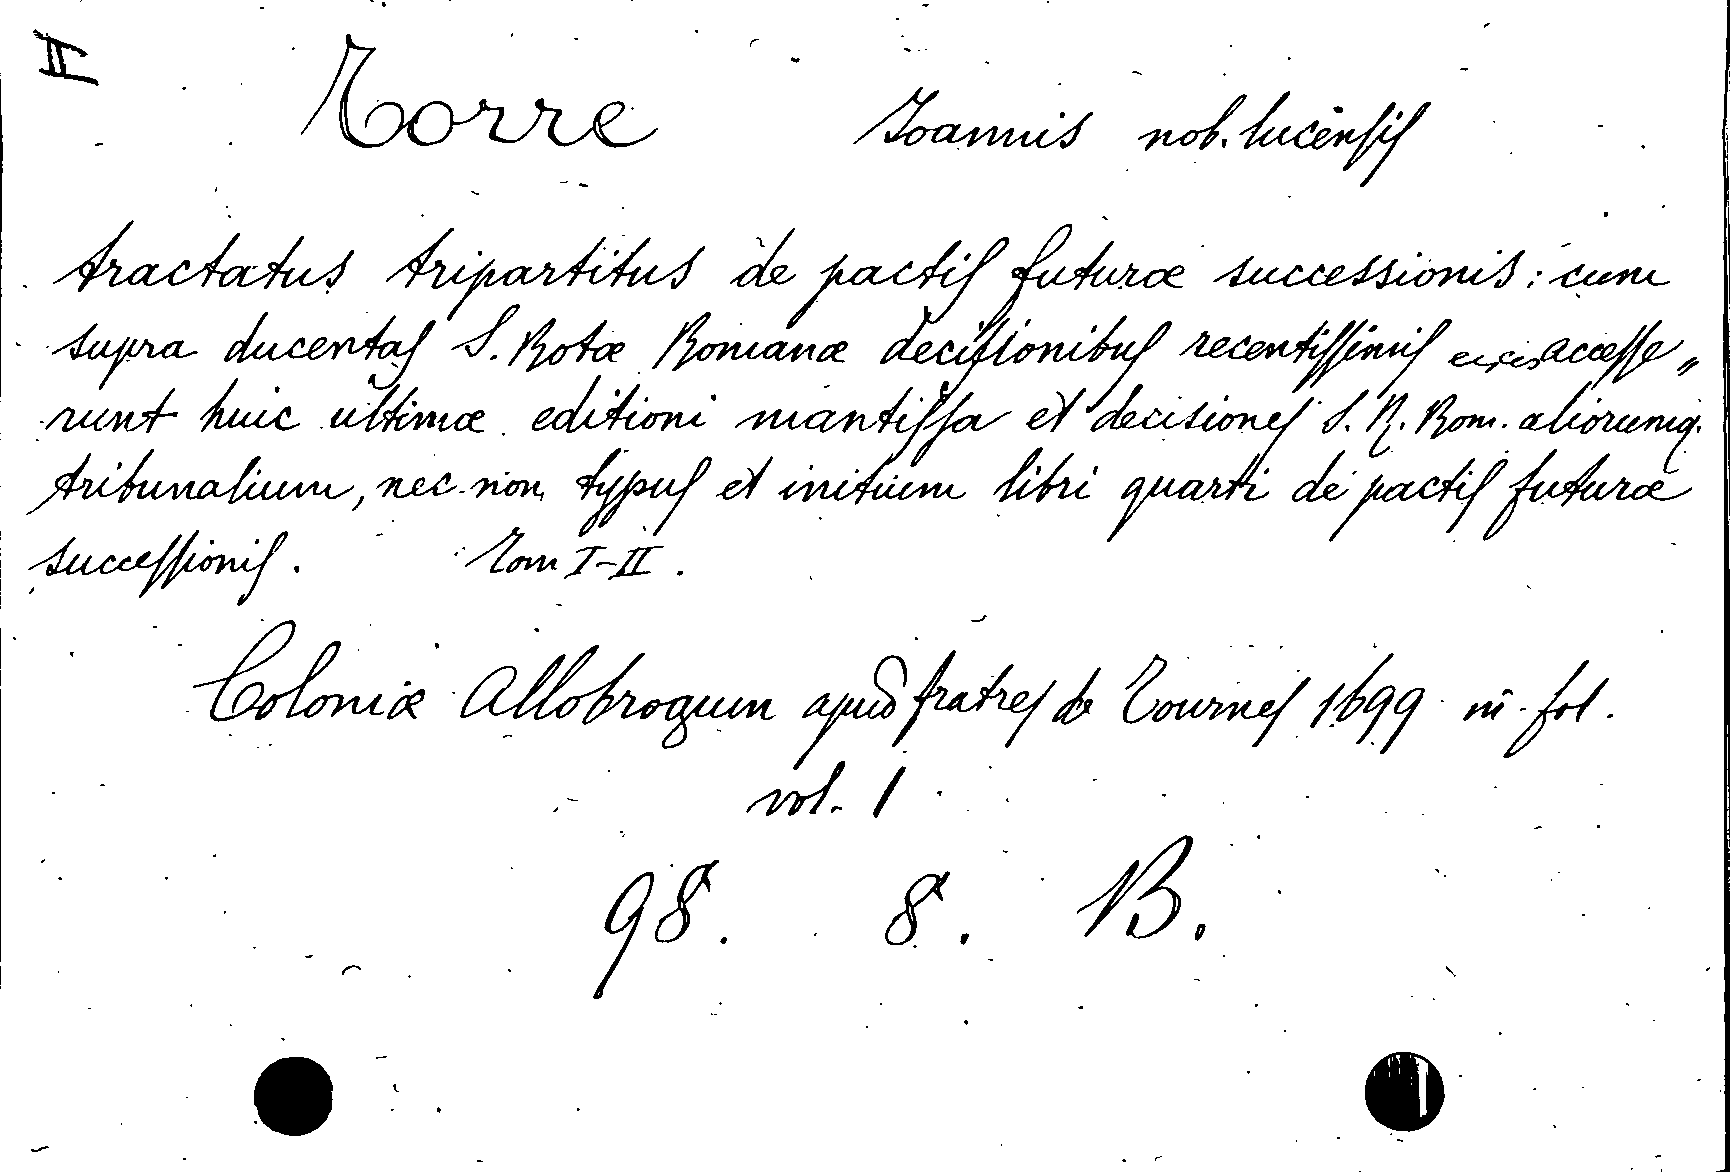 II
Torre Joannis nob. lucensis
tractatus tripartitus de pactis futuræ successionis: cum
supra ducentas S. Rotæ Romanæ decissionibus recentissimis accesse„
runt huic ultimæ editioni mantissa et decisiones S. R. Rom. aliorumq.
tribunalium, nec non typus et initium libri quarti de pactis futuræ
successionis. Tom I-II.
Coloniæ Allobrogum apud fratres de Tournes 1699 in fol.
vol. 1
98. 8. B.